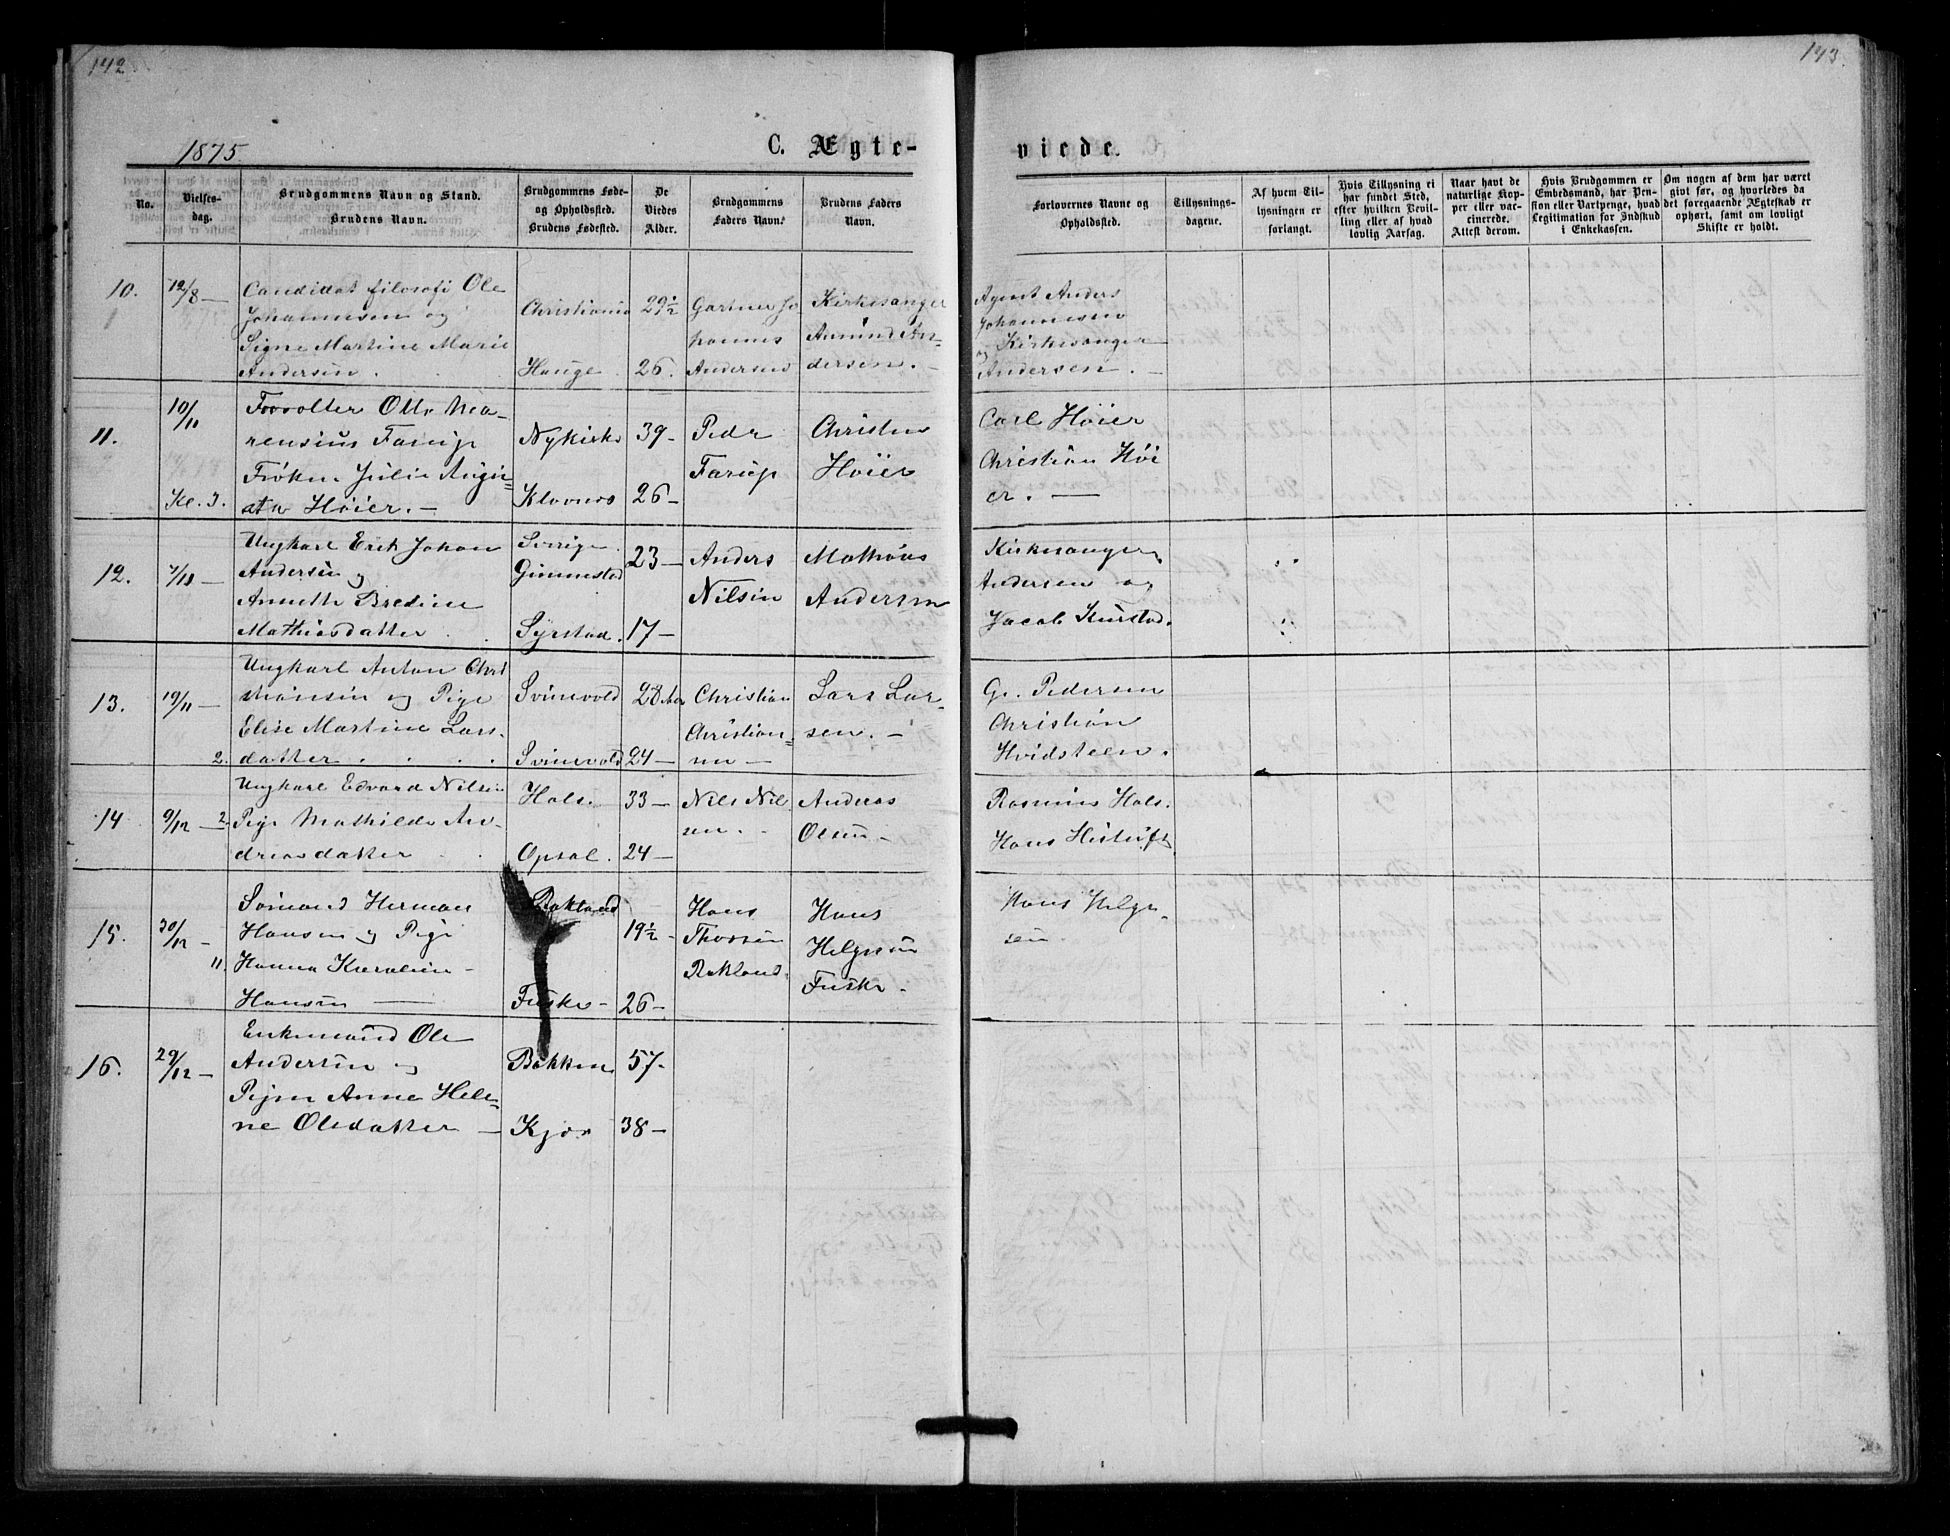 142
143.
1875
C. Ægte-
viede.
No.
Vielses-
dag.
Brudgommens Navn og Stand.
Brudens Navn.
Brudgommens Føde-
og Opholdssted.
Brudens Fødested.
De
Viedes
Alder.
Brudgommens
Faders Navn.
Brudens Faders
Navn.
Forlovernes Navne og
Opholdssted.
Tillysnings-
dagene.
Af hvem Til-
lysningen er
forlangt.
Hvis Tillysning ei
har fundet Sted,
efter hvilken Bevil-
ling eller af hvad
lovlig Aarsag.
Naar havt de
naturlige Kop-
per eller vac-
cinerede.
Attest derom.
Hvis Brudgommen er
Embedsmand, har Pen-
sion eller Vartpenge, hvad
Legitimation for Indskud
i Enkekassen.
Om nogen af dem har været
gift før, og hvorledes da
det foregaaende Ægteskab er
ophørt, samt om lovligt
Skifte er holdt.
10.
12/8 —
Candidat filosofi Ole
Johannesen og
Signe Martine Marie
Andersen .
Christiania
Hauge
29½
26.
Gartner Jo
hannes
Andersen
Kirkesanger
Amund An=
dersen. —
Agent Anders
Johannesen
og Kirkesanger
Andersen. —
11.
10/11
Kl. 3.
Forvalter Otto
rensius Farup
Frøken Julie Augu
sta Høier. —
Nykirke
Klovnes
39 —
26 —
Peder
Farup
Christen
Høier
Carl Høier
Christian Høi
er. —
12.
Ungkarl Erik Johan
Andersen og
Annette Bredine
Mathiasdatter . .
Sverige
Gimmestad
Syrstad.
23 —
17 —
Anders
Nilsen
Mathias
Andersen
Kirkesanger
Andersen og
Jacob
13.
19/11 —
2.
Ungkarl Anton Chri
stiansen og Pige
Elise Martine Lars.
datter . . .
Svinevold
Svinevold
28 Aar
24 —
Christian
Christian=
sen —
Lars Lar=
sen. —
G. Pedersen
Christian
Hvidsteen.
14
9/12 — 2
Ungkarl Edvard Nilsen
Pige Mathilde An-
dreasdatter . .
Hals.
Opsal.
33 —
24 —
Nils Nil
sen. -
Andreas
Olsen —
Rasmus Hals.
Hans
15.
30/12 —
11.
Sømand Herman
Hansen og Pige
Hanna Karoline —
Hansen —
Rokland
Fuske —
19½ —
26 —
Hans
Thorsen
Rokland.
Hans
Helgesen
Fuske —
Hans Helge
sen.
16.
29/12 —
Enkemand Ole
Andersen og
Pigen Anne Hele=
ne Olsdatter —
Bakken
Kjær
57 -
38 —